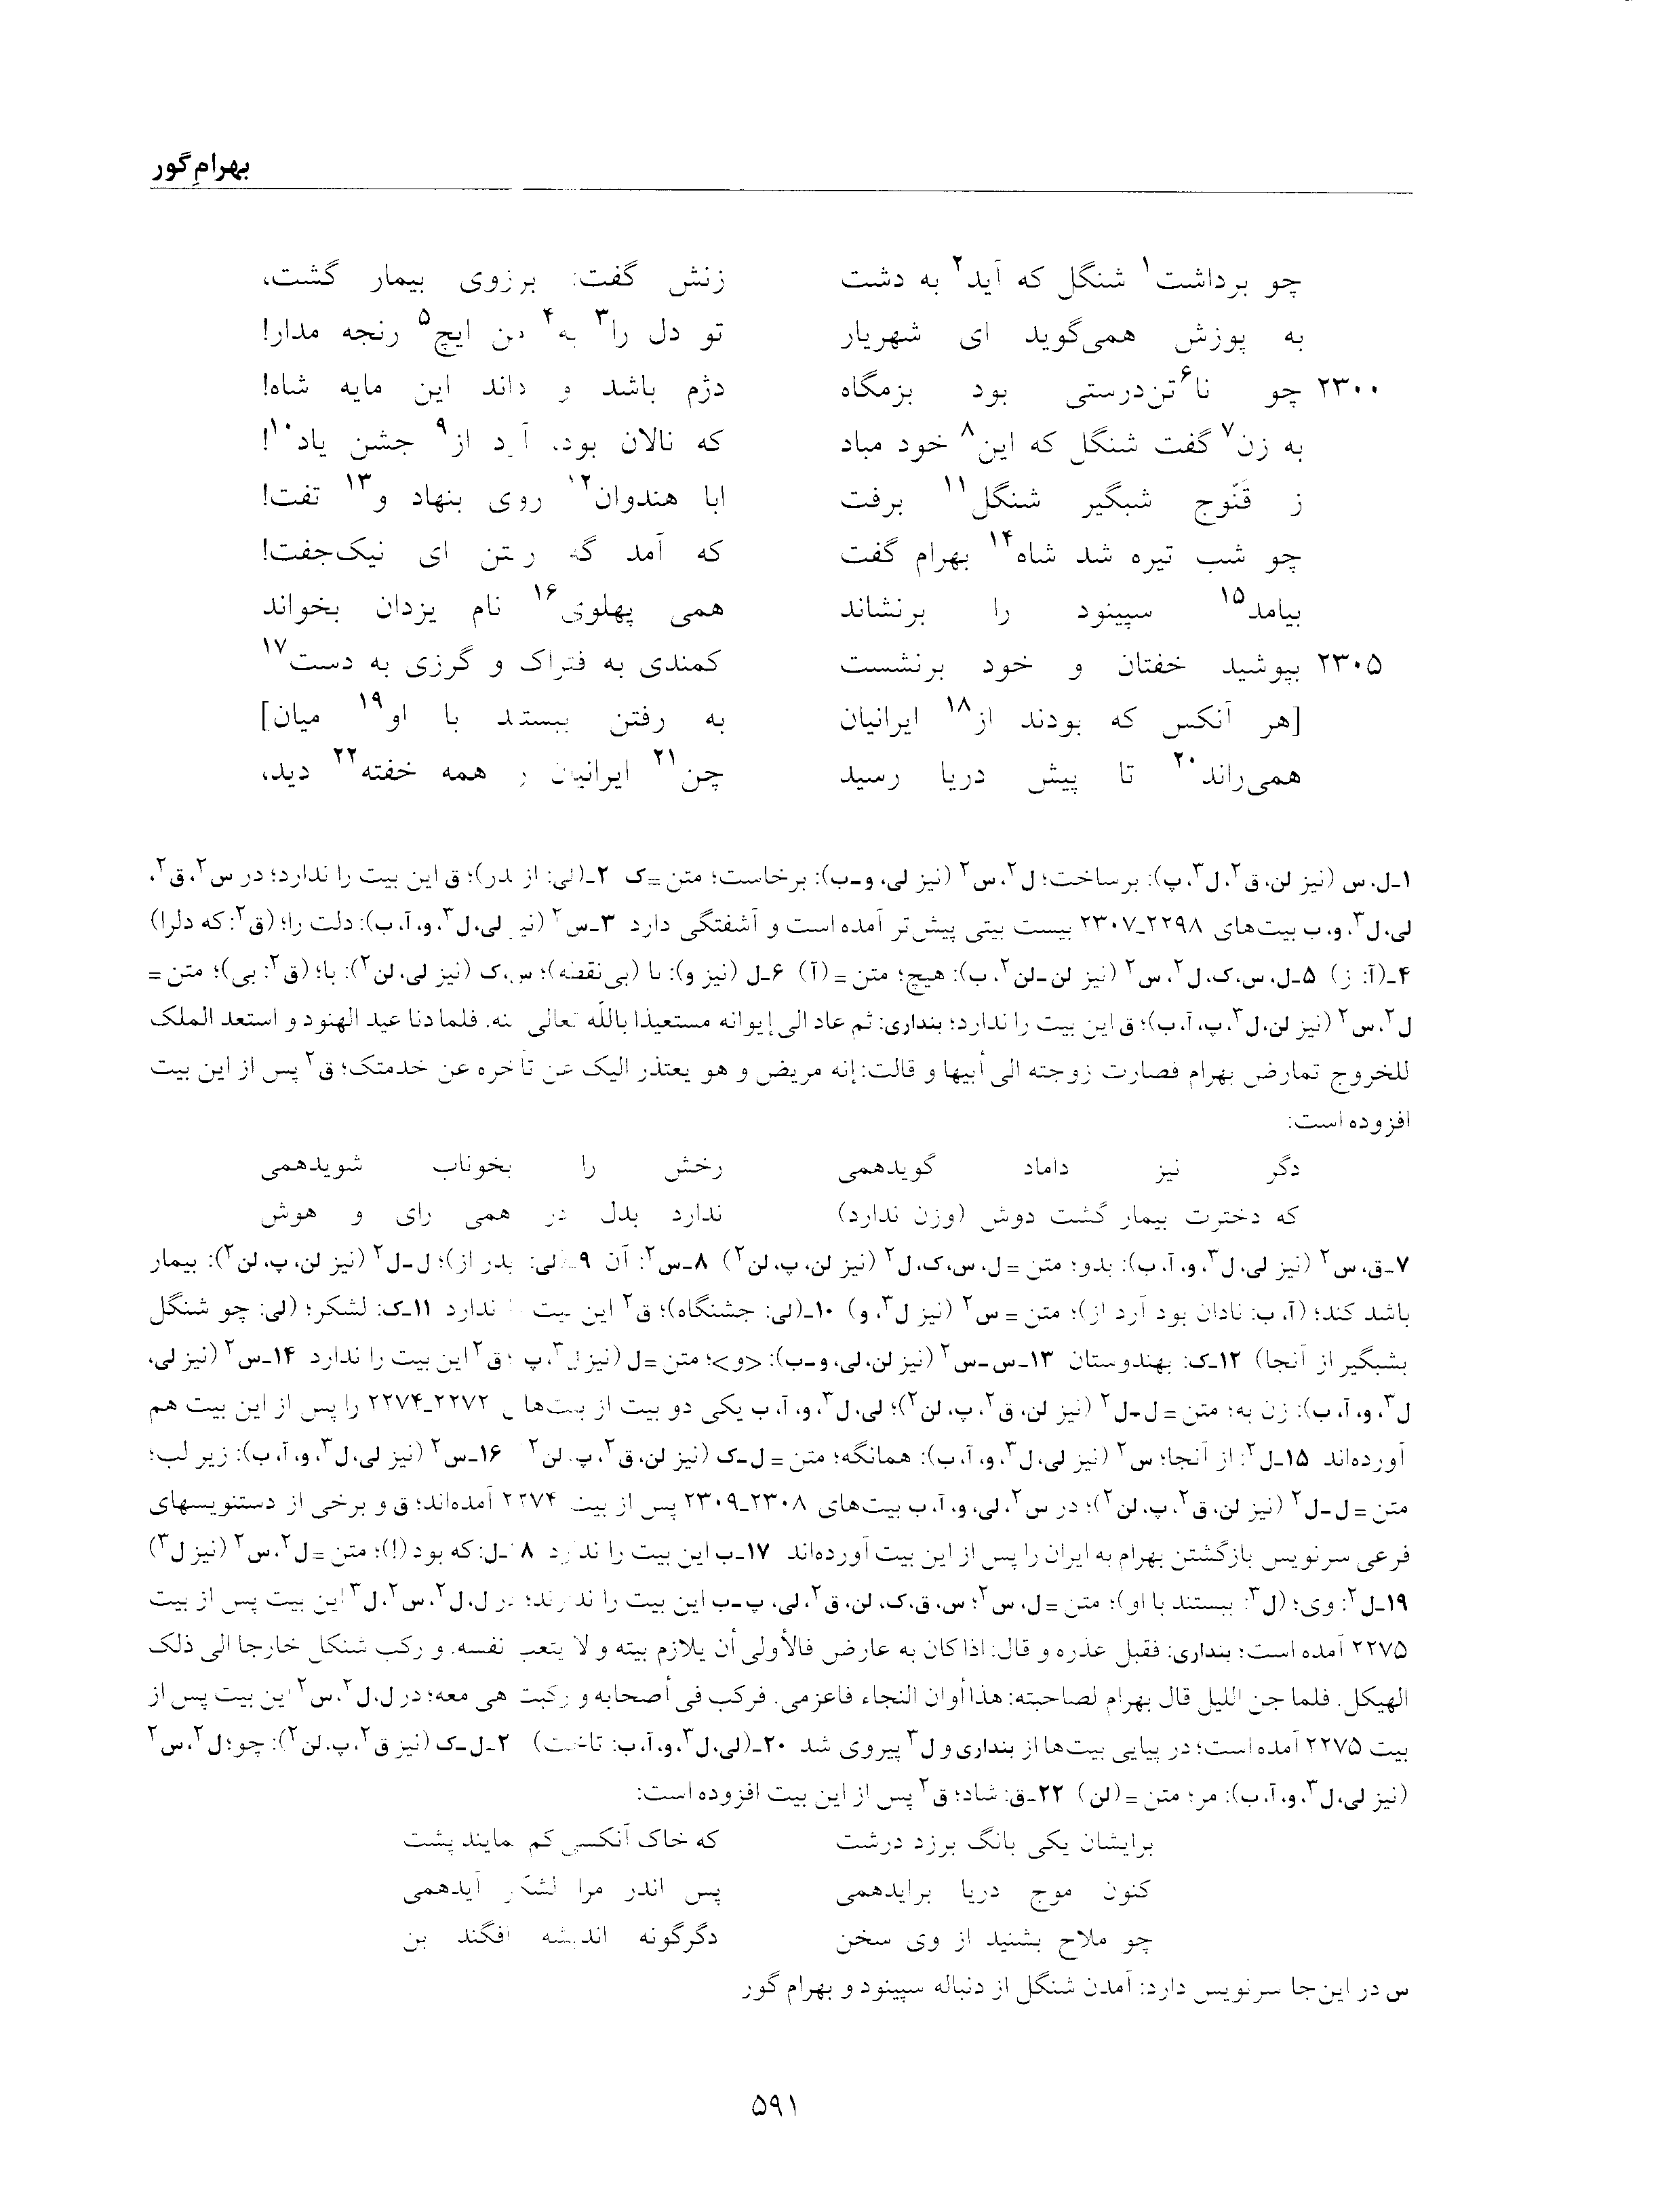 بهرامِ گور
چو برداشت¹ شنگل که آید² به دشت زنش گفت: برزوی بیمار گشت،
به پوزش همی‌گوید ای شهریار تو دل را³ به⁴ من ایچ⁵ رنجه مدار!
۲۳۰۰ چو نا⁶تن‌درستی بود بزمگاه دژم باشد و داند این مایه شاه!
به زن⁷ گفت شنگل که این⁸ خود مباد که نالان بود، آرد از⁹ جشن یاد¹⁰!
ز قَنّوج شبگیر شنگل¹¹ برفت ابا هندوان¹² روی بنهاد و¹³ تفت!
چو شب تیره شد شاه¹⁴ بهرام گفت که آمد گه رفتن ای نیک‌جفت!
بیامد¹⁵ سپینود را برنشاند همی پهلوی¹⁶ نام یزدان بخواند
۲۳۰۵ بپوشید خفتان و خود برنشست کمندی به فتراک و گرزی به دست¹⁷
[هر آنکس که بودند از¹⁸ ایرانیان به رفتن ببستند با او¹⁹ میان]
همی‌راند²⁰ تا پیش دریا رسید چن²¹ ایرانیان را همه خفته²² دید،
۱ـ‌ل، س (نیز لن، ق²، ل³، پ): برساخت؛ ل²، س² (نیز لی، و‌ـ‌ب): برخاست؛ متن = ک ۲ـ‌(لی: از در)؛ ق این بیت را ندارد؛ در س²، ق²،
لی، ل³، و، ب بیت‌های ۲۲۹۸ـ۲۳۰۷ بیست بیتی پیش‌تر آمده‌است و آشفتگی دارد ۳ـ‌س² (نیز لی، ل³، و، آ، ب): دلت را؛ (ق²: که دلرا)
۴ـ‌(آ: ز) ۵ـ‌ل، س، ک، ل²، س² (نیز لن‌ـ‌لن²، ب): هیچ؛ متن = (آ) ۶ـ‌ل (نیز و): ٮا (بی‌نقطه)؛ س، ک (نیز لی، لن²): با؛ (ق²: بی)؛ متن =
ل²، س² (نیز لن، ل³، پ، آ، ب)؛ ق این بیت را ندارد؛ بنداری: ثم عاد الی إیوانه مستعیذا باللّه تعالی منه. فلما دنا عید الهنود و استعد الملک
للخروج تمارض بهرام فصارت زوجته الی أبیها و قالت: إنه مریض و هو یعتذر الیک عن تأخره عن خدمتک؛ ق² پس از این بیت
افزوده است:
دگر نیز داماد گویدهمی رخش را بخوناب شویدهمی
که دخترت بیمار گشت دوش (وزن ندارد) ندارد بدل در همی رای و هوش
۷ـ‌ق، س² (نیز لی، ل³، و، آ، ب): بدو؛ متن = ل، س، ک، ل² (نیز لن، پ، لن²) ۸ـ‌س²: آن ۹ـ‌(لی: بدر از)؛ ل‌ـ‌ل² (نیز لن، پ، لن²): بیمار
باشد کند؛ (آ، ب: نادان بود آرد از)؛ متن = س² (نیز ل³، و) ۱۰ـ‌(لی: جشنگاه)؛ ق² این بیت را ندارد ۱۱ـ‌ک: لشکر؛ (لی: چو شنگل
بشبگیر از آنجا) ۱۲ـ‌ک: بهندوستان ۱۳ـ‌س‌ـ‌س² (نیز لن، لی، و‌ـ‌ب): <و>؛ متن = ل (نیز ل³، پ)؛ ق² این بیت را ندارد ۱۴ـ‌س² (نیز لی،
ل³، و، آ، ب): زن به؛ متن = ل‌ـ‌ل² (نیز لن، ق²، پ، لن²)؛ لی، ل³، و، آ، ب یکی دو بیت از بیت‌های ۲۲۷۲ـ۲۲۷۴ را پس از این بیت هم
آورده‌اند ۱۵ـ‌ل²: از آنجا؛ س² (نیز لی، ل³، و، آ، ب): همانگه؛ متن = ل‌ـ‌ک (نیز لن، ق²، پ، لن²) ۱۶ـ‌س² (نیز لی، ل³، و، آ، ب): زیر لب؛
متن = ل‌ـ‌ل² (نیز لن، ق²، پ، لن²)؛ در س²، لی، و، آ، ب بیت‌های ۲۳۰۸ـ۲۳۰۹ پس از بیت ۲۲۷۴ آمده‌اند؛ ق و برخی از دستنویسهای
فرعی سرنویس بازگشتن بهرام به ایران را پس از این بیت آورده‌اند ۱۷ـ‌ب این بیت را ندارد ۱۸ـ‌ل: که بود (!)؛ متن = ل²، س² (نیز ل³)
۱۹ـ‌ل²: وی؛ (ل³: ببستند با او)؛ متن = ل، س²؛ س، ق، ک، لن، ق²، لی، پ‌ـ‌ب این بیت را ندارند؛ در ل، ل²، س²، ل³ این بیت پس از بیت
۲۲۷۵ آمده است؛ بنداری: فقبل عذره و قال: اذا کان به عارض فالأولی أن یلازم بیته و لا یتعب نفسه. و رکب شنکل خارجا الی ذلک
الهیکل. فلما جن اللیل قال بهرام لصاحبته: هذا أوان النجاء فاعزمی. فرکب فی أصحابه و رکبت هی معه؛ در ل، ل²، س² این بیت پس از
بیت ۲۲۷۵ آمده‌است؛ در پیاپی بیت‌ها از بنداری و ل³ پیروی شد ۲۰ـ‌(لی، ل³، و، آ، ب: تاخت) ۲۱ـ‌ل‌ـ‌ک (نیز ق²، پ، لن²): چو؛ ل²، س²
(نیز لی، ل³، و، آ، ب): مر؛ متن = (لن) ۲۲ـ‌ق: شاد؛ ق² پس از این بیت افزوده است:
برایشان یکی بانگ برزد درشت که خاک آنکسی کم نمایند پشت
کنون موج دریا برایدهمی پس اندر مرا لشکر آیدهمی
چو ملاح بشنید از وی سخن دگرگونه اندیشه افگند بن
س در این‌جا سرنویس دارد: آمدن شنگل از دنباله سپینود و بهرام گور
۵۹۱